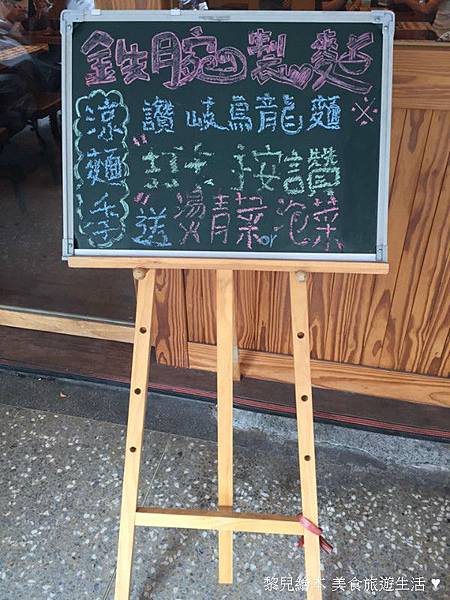 鉄腕製麵
涼麵季
讚岐烏龍麵
按讚
送燙青菜or泡菜
黎兒繪本 美食旅遊生活 ♥